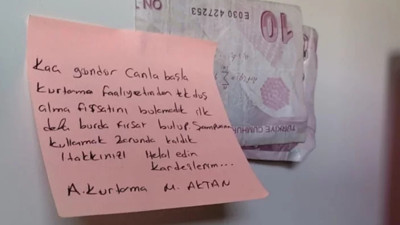 Kaç gündür Canla başla
kurtarma faaliyetinden tek duş
alma fırsatını bulamadık ilk
defa burda fırsat bulup Şampuanı
kullanmak zorunda kaldık
Hakkınızı Helal edin
kardeşlerim...
A. Kurtarma M. AKTAN
ON
E030 427253
10
TÜRKİYE CUMHURİ